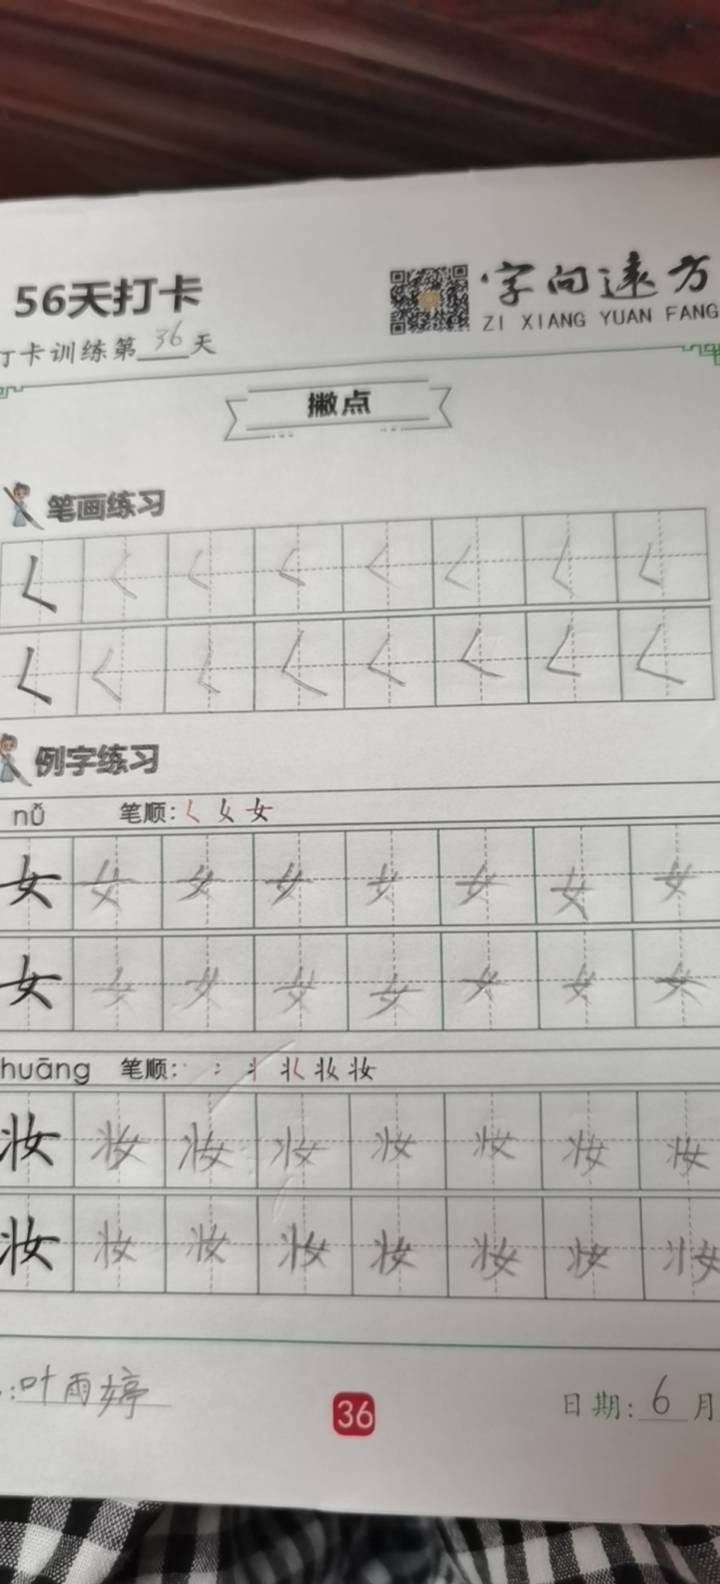 56天打卡
字向远方
ZI XIANG YUAN FANG
打卡训练第36天
撇点
笔画练习
𡿨 𡿨 𡿨 𡿨 𡿨 𡿨 𡿨 𡿨
𡿨 𡿨 𡿨 𡿨 𡿨 𡿨 𡿨 𡿨
例字练习
nǚ 笔顺: 𡿨 女
女 女 女 女 女 女 女 女
女 女 女 女 女 女 女 女
huāng 笔顺: 丬 妆 妆
妆 妆 妆 妆 妆 妆 妆 妆
妆 妆 妆 妆 妆 妆 妆 妆
:叶雨婷
36
日期:6月